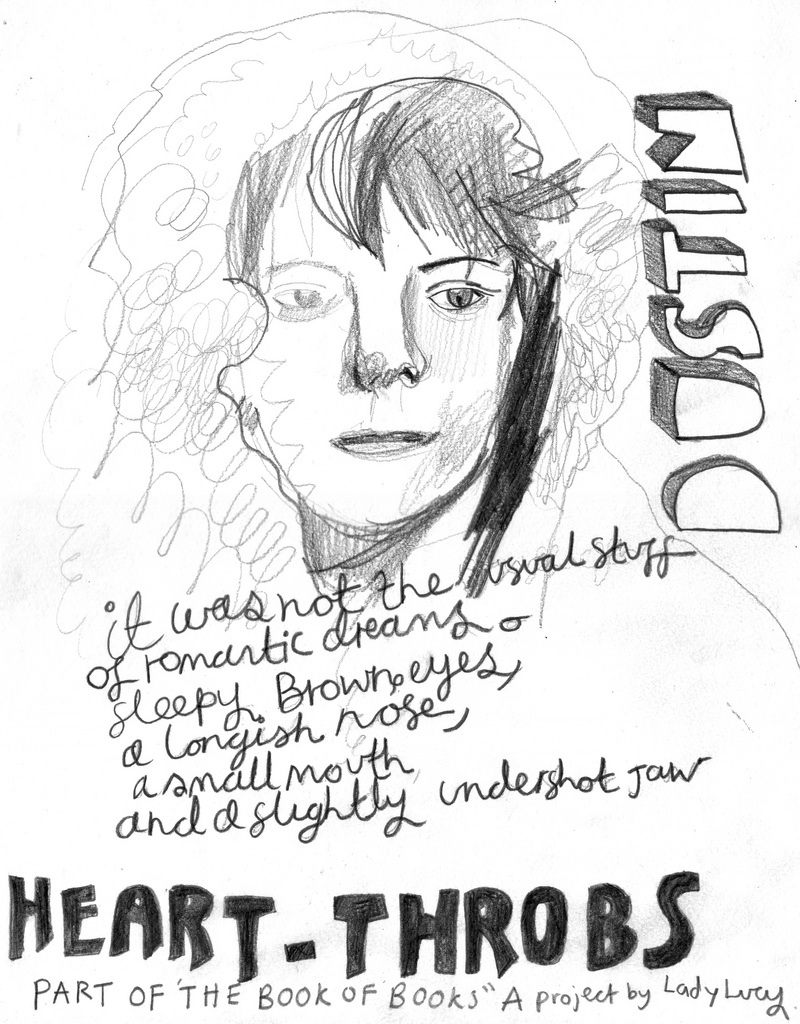 DUSTIM
it was not the usual stuff
of romantic dreams -
sleepy Brown eyes,
a longish nose,
a small mouth
and a slightly undershot jaw
HEART-THROBS
PART OF 'THE BOOK OF BOOKS" A project by Lady Lucy.